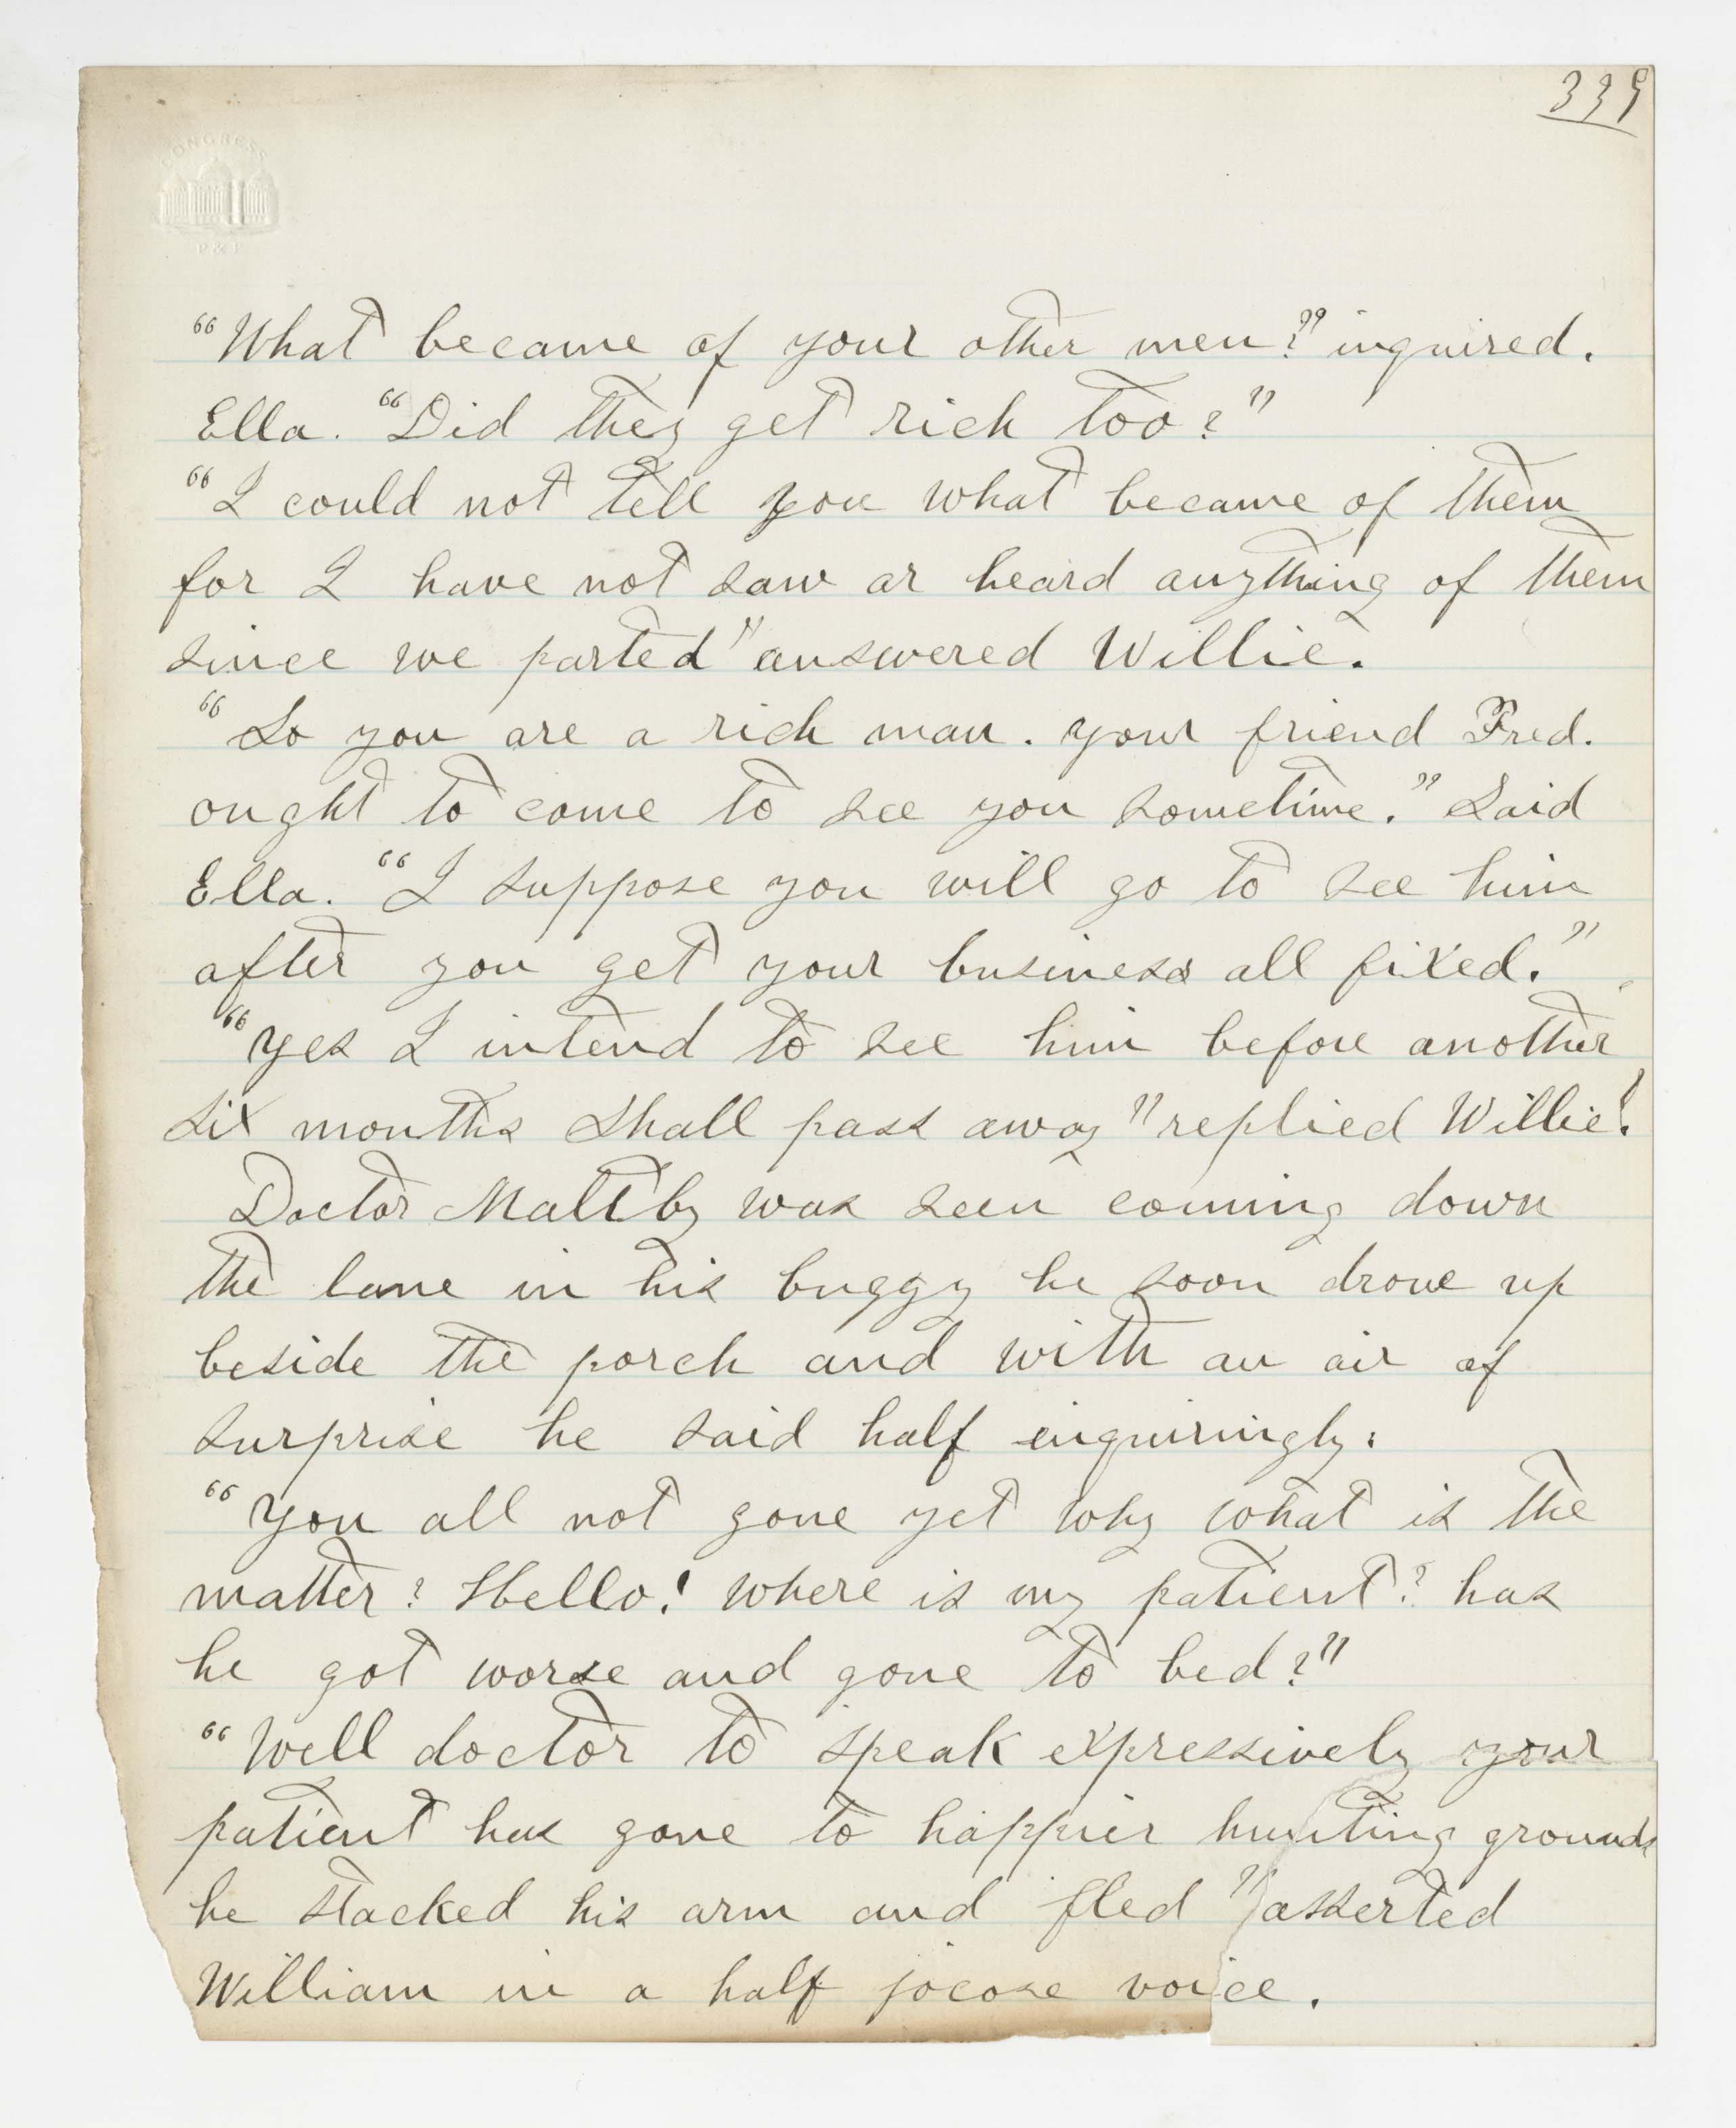 339
CONGRESS
P & P
"What became of your other men?" inquired.
Ella. "Did they get rich too?"
"I could not tell you what became of them
for I have not saw or heard anything of them
since we parted" answered Willie.
"So you are a rich man. your friend Fred.
ought to come to see you sometime." Said
Ella. "I suppose you will go to see him
after you get your business all fixed."
"Yes I intend to see him before another
six months shall pass away" replied Willie!
Doctor Maltby was seen coming down
the lane in his buggy he soon drove up
beside the porch and with an air of
surprise he said half inquiringly:
"You all not gone yet why what is the
matter? Hello! Where is my patient? has
he got worse and gone to bed?"
"Well doctor to speak expressively your
patient has gone to happier hunting grounds
he stacked his arm and fled" asserted
William in a half jocose voice.